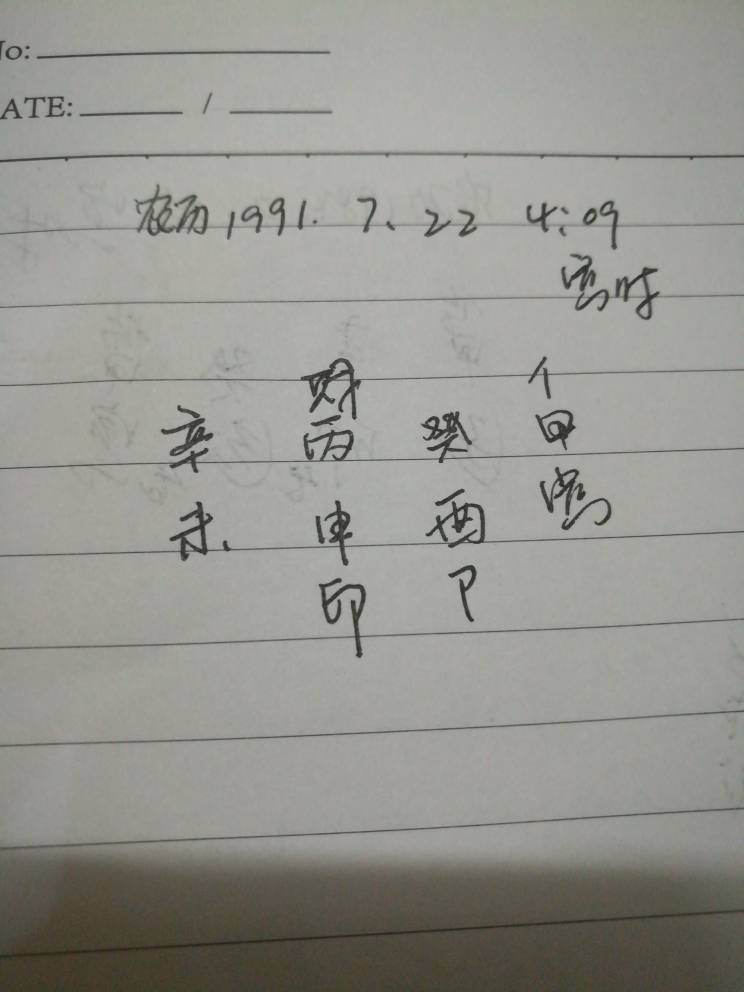 No:
DATE: /
农历 1991. 7. 22 4:09
寅时
财
辛 丙 癸 甲
未. 申 酉 寅
印 卩